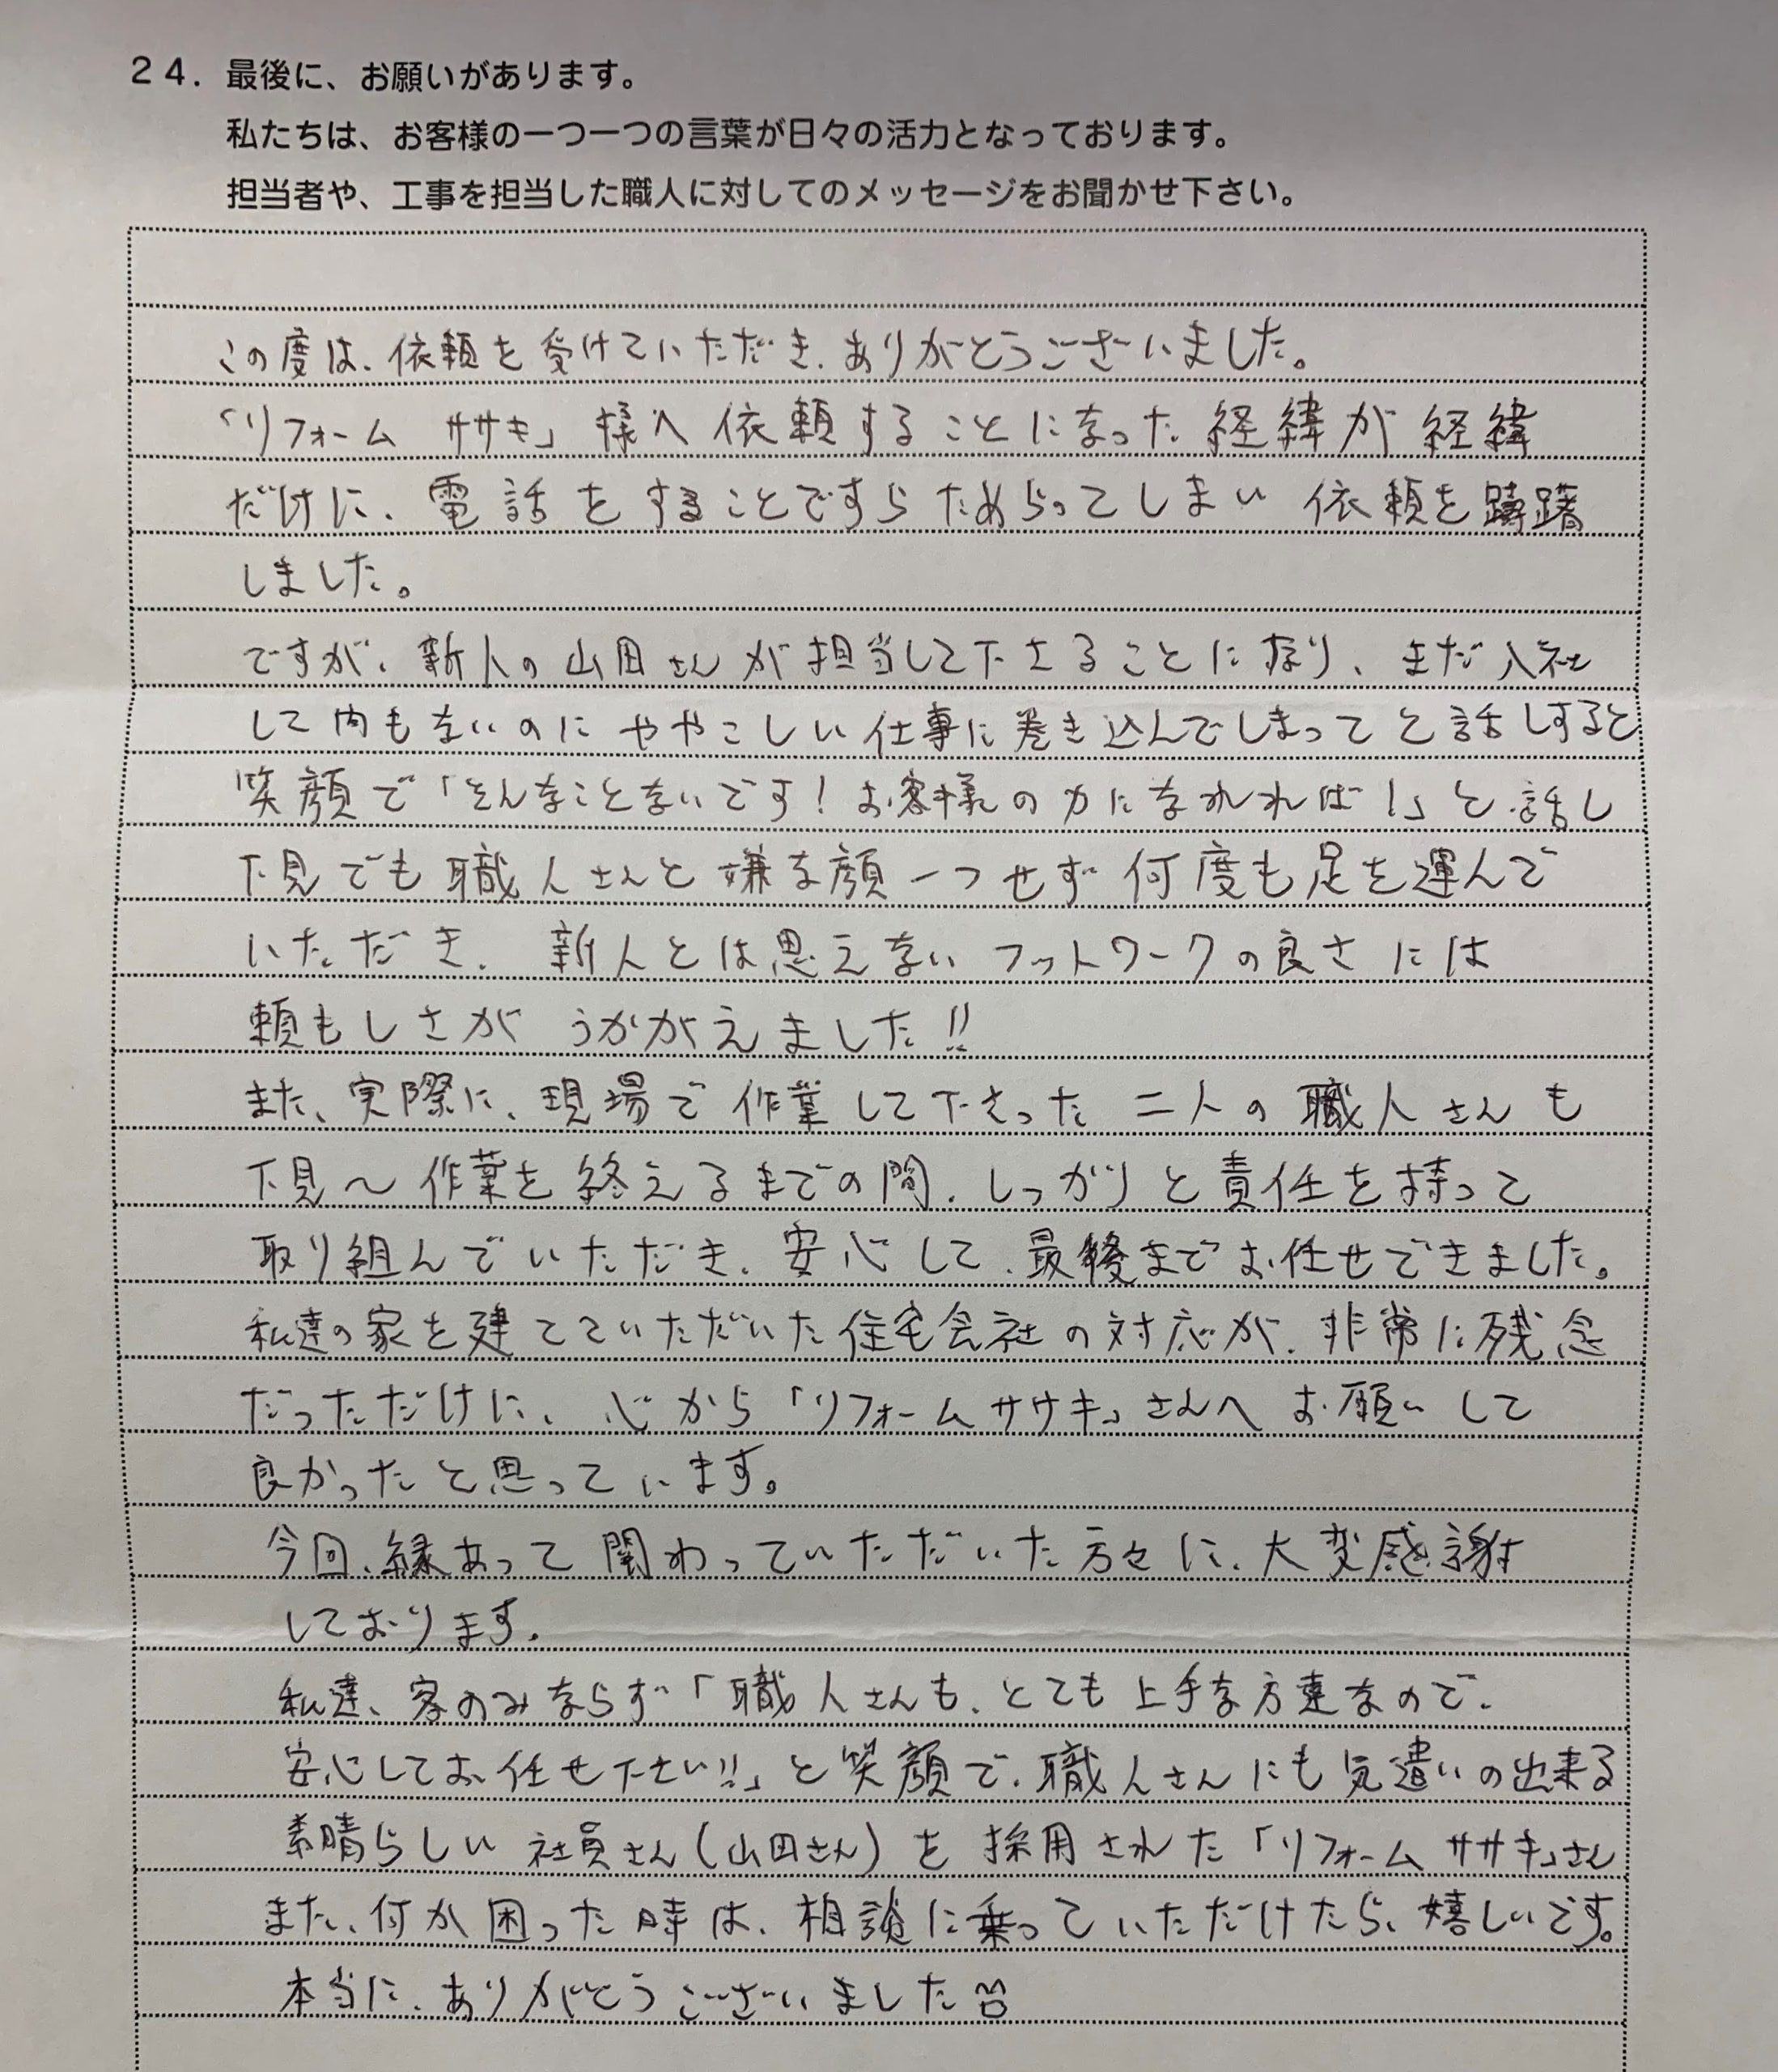 24. 最後に、お願いがあります。
私たちは、お客様の一つ一つの言葉が日々の活力となっております。
担当者や、工事を担当した職人に対してのメッセージをお聞かせ下さい。
この度は、依頼を受けていただき、ありがとうございました。
「リフォーム ササキ」様へ依頼することになった経緯が経緯
だけに、電話をすることですらためらってしまい 依頼を躊躇
しました。
ですが、新人の山田さんが担当して下さることに有り、まだ入社
して内もないのにややこしい仕事に巻き込んでしまってと話しすると
笑顔で「そんなことないです!お客様の力になれれば!」と話し
下見でも職人さんと嫌な顔一つせず何度も足を運んで
いただき、新人とは思えないフットワークの良さには
頼もしさが うかがえました!!
また、実際に、現場で作業して下さった二人の職人さんも
下見〜作業を終えるまでの間、しっかりと責任を持って
取り組んでいただき、安心して、最後までお任せできました。
私達の家を建てていただいた住宅会社の対応が、非常に残念
だっただけに、心から「リフォームササキ」さんへお願いして
良かったと思っています。
今回、縁あって関わっていただいた方々に、大変感謝
しております。
私達、客のみならず「職人さんも、とても上手な方達なので、
安心してお任せ下さい!!」と笑顔で、職人さんにも気遣いの出来る
素晴らしい社員さん(山田さん)を採用された「リフォーム ササキ」さん
また、何か困った時は、相談に乗っていただけたら、嬉しいです。
本当に、ありがとうございました